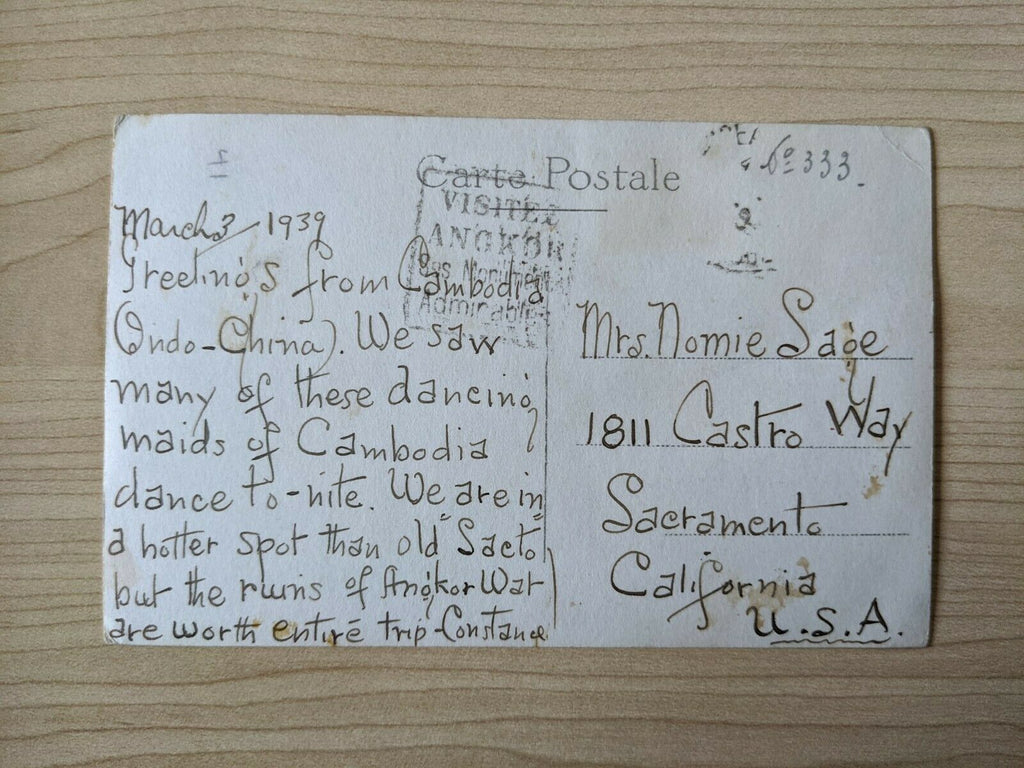 Carte Postale
No 333.
VISITEZ
ANGKOR
Ses Monuments
Admirables
March 3, 1939
Greetings from Cambodia
(Indo-China). We saw
many of these dancing
maids of Cambodia
dance to-nite. We are in
a hotter spot than old "Sacto"
but the ruins of Angkor Wat
are worth entire trip - Constance
Mrs. Nomie Sage
1811 Castro Way
Sacramento
California
U.S.A.